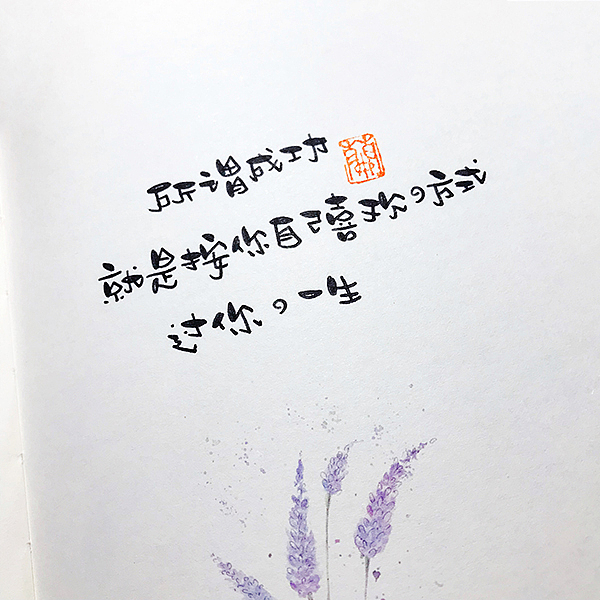 所谓成功
蘭
就是按你自己喜欢の方式
过你の一生